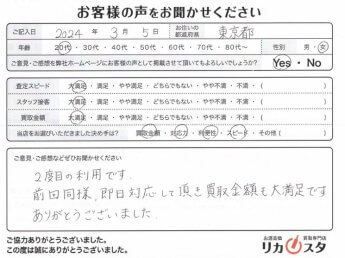 お客様の声をお聞かせください
ご記入日 2024年 3月 5日 お住いの都道府県 東京都
年齢 20代・30代・40代・50代・60代・70代・80代〜 性別 男・女
ご意見・ご感想を弊社ホームページにお客様の声として掲載させて頂いてもよろしいでしょうか? Yes・No
査定スピード 大満足・満足・やや満足・どちらでもない・やや不満・不満・( )
スタッフ接客 大満足・満足・やや満足・どちらでもない・やや不満・不満・( )
買取金額 大満足・満足・やや満足・どちらでもない・やや不満・不満・( )
当店をお選びいただきました決め手は? 買取金額・対応力・利便性・スピード・その他( )
ご意見・ご感想などぜひお聞かせください
2度目の利用です.
前回同様、即日対応して頂き買取金額も大満足です
ありがとうございました.
ご協力ありがとうございました。
この度は誠にありがとうございました。
お酒高価買取専門店
リカスタ